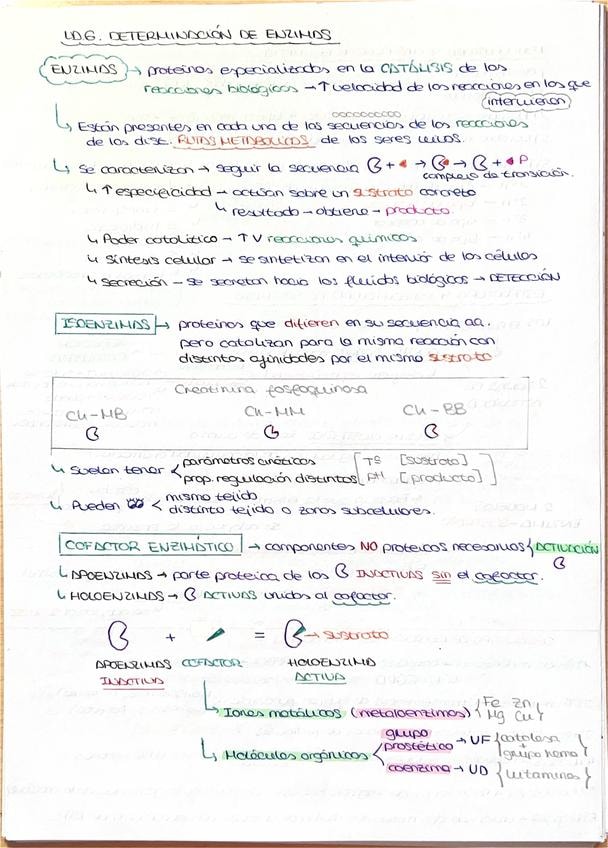 UD6. DETERMINACIÓN DE ENZIMAS
ENZIMAS → proteínas especializadas en la CATÁLISIS de las
reacciones biológicas → ↑ velocidad de las reacciones en las que
intervienen
↳ Están presentes en cada una de las secuencias de las reacciones
de las dist. RUTAS METABÓLICAS de los seres vivos.
↳ Se caracterizan → seguir la secuencia + → → + P
complejo de transición.
↳ ↑ especificidad → actúan sobre un sustrato concreto
↳ resultado → obtiene → producto.
↳ Poder catalítico → ↑ V reacciones químicas
↳ Síntesis celular → se sintetizan en el interior de las células
↳ Secreción → se secretan hacia los fluidos biológicos → DETECCIÓN
ISOENZIMAS → proteínas que difieren en su secuencia aa.
pero catalizan para la misma reacción con
distintas afinidades por el mismo sustrato
Creatinina fosfoquinasa
CK-MB CK-MM CK-BB
↳ Suelen tener < parámetros cinéticos [TS [sustrato]
prop. regulación distintos [PH [producto]]
↳ Pueden < mismo tejido
distinto tejido o zonas subcelulares.
COFACTOR ENZIMÁTICO → componentes NO proteicos necesarios {ACTIVACIÓN
↳ APOENZIMAS → parte proteica de las INACTIVAS sin el cofactor.
↳ HOLOENZIMAS → ACTIVAS unidas al cofactor.
+ = → sustrato
APOENZIMAS COFACTOR HOLOENZIMA
INACTIVA ACTIVA
↳ Iones metálicos (metaloenzimas) {Fe Zn
Mg Cu}
↳ Moléculas orgánicas < grupo
prostético → UF {catalasa
+
grupo hemo}
coenzima → UD {vitaminas}